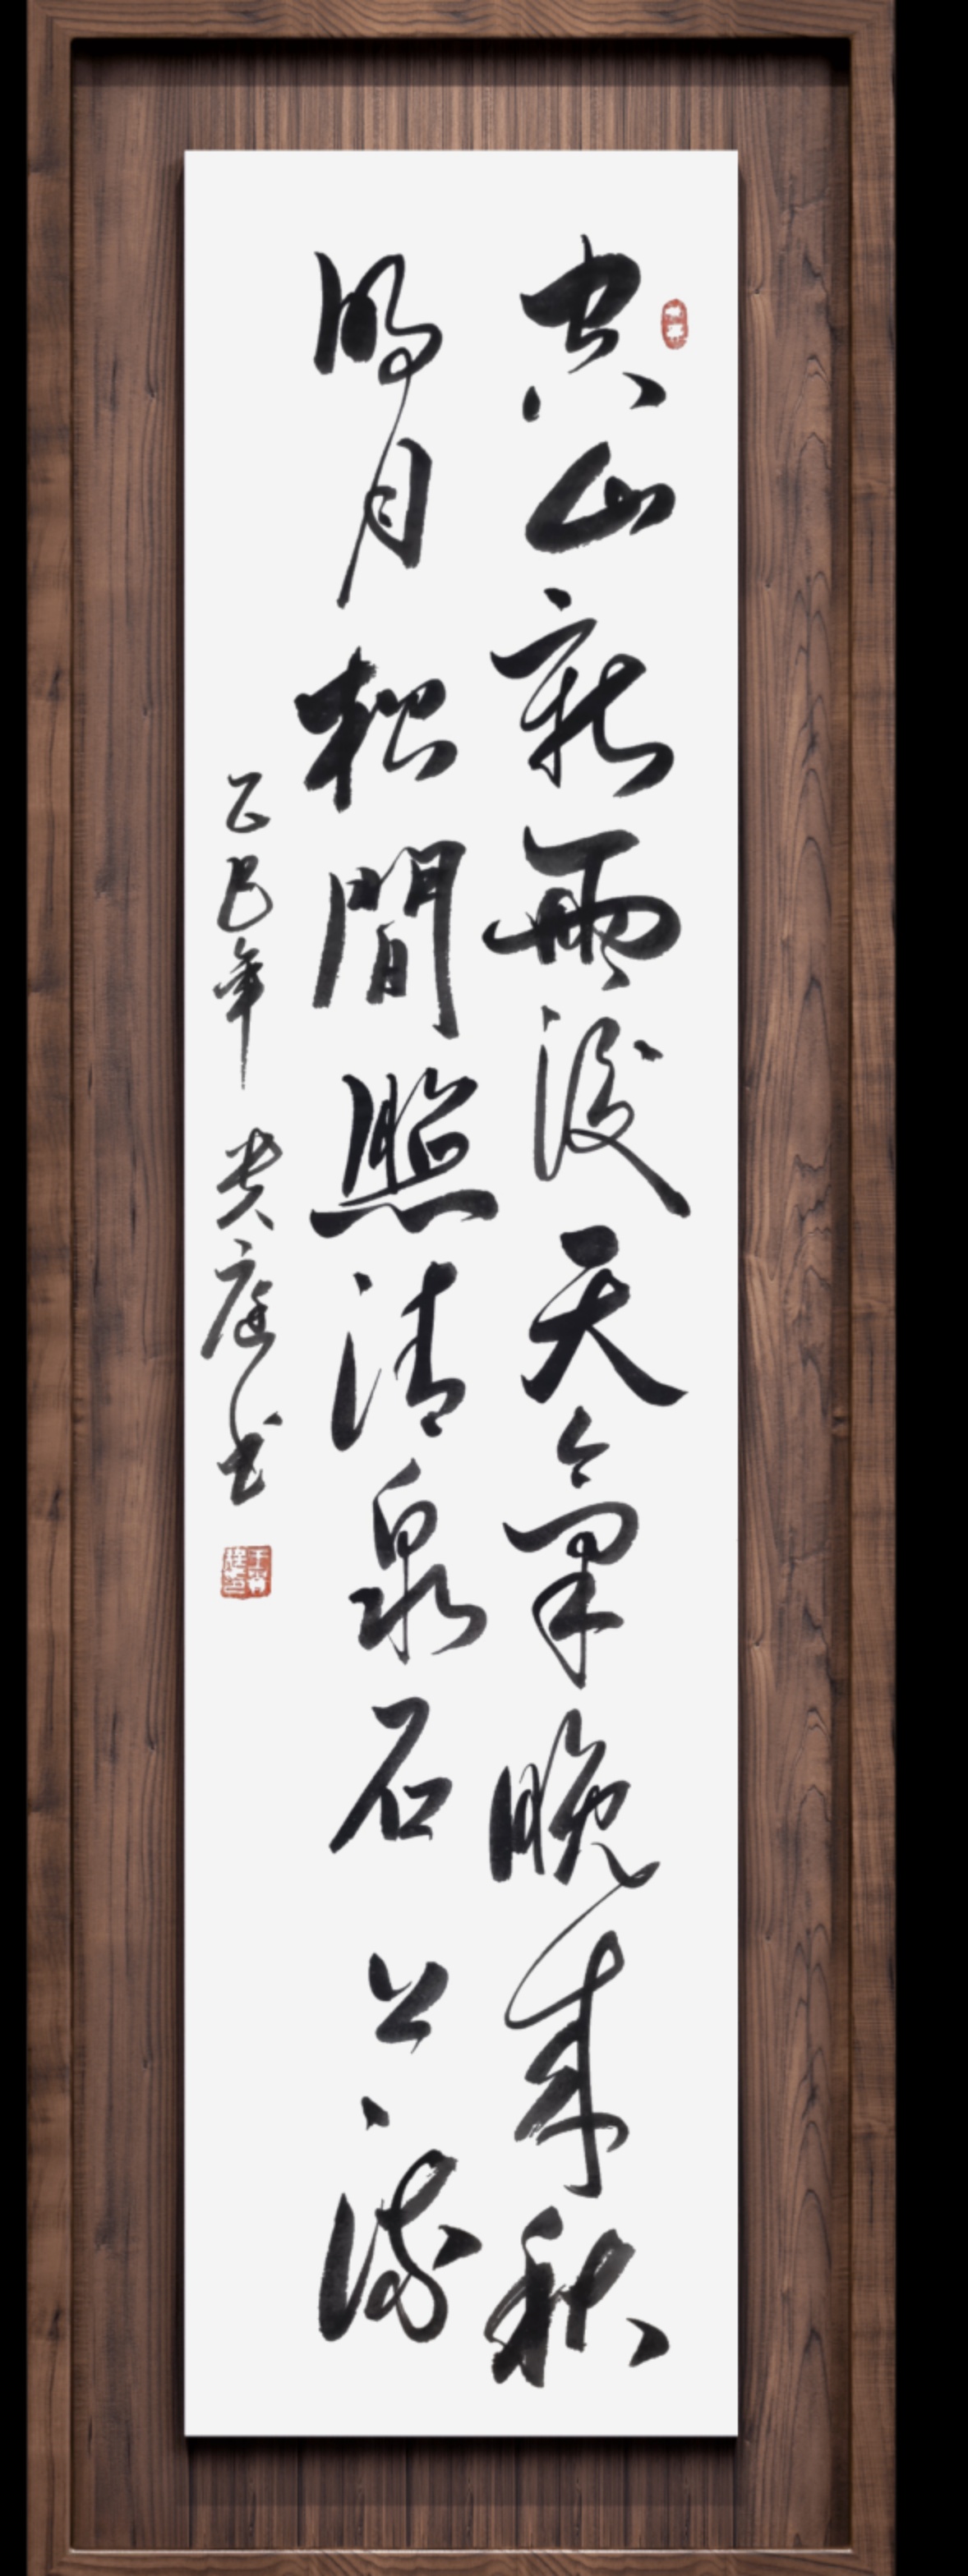 空山新雨後天氣晚來秋
明月松間照清泉石上流
乙巳年 貴庭书